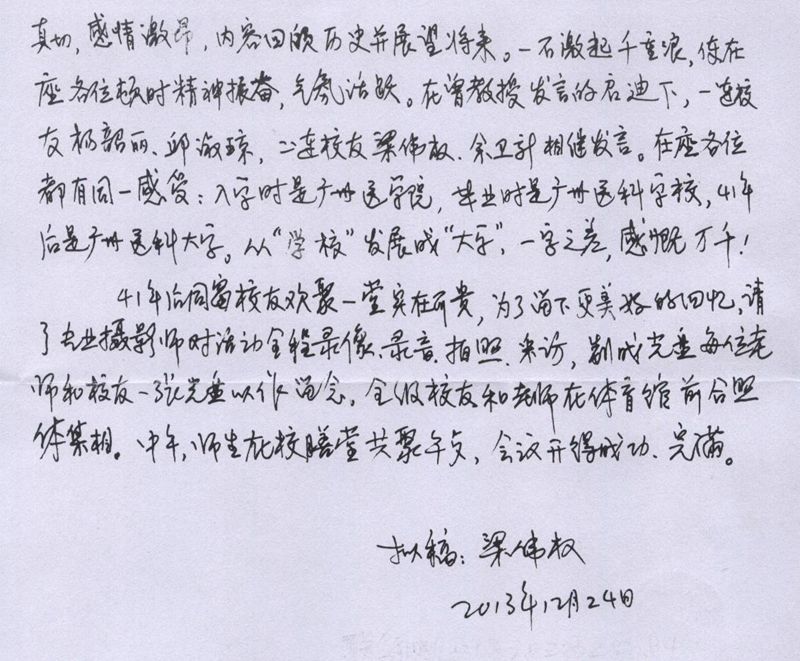 真切,感情激昂,内容回顾历史并展望将来。一石激起千重浪,使在
座各位顿时精神振奋,气氛活跃。在曾教授发言的启迪下,一连校
友杨韶丽、邱淑琼,二连校友梁伟权、余卫计相继发言。在座各位
都有同一感受:入学时是广州医学院,毕业时是广州医科学校,41年
后是广州医科大学。从“学校”发展成“大学”,一字之差,感慨万千!
41年后同窗校友欢聚一堂实在可贵,为了留下更美好的回忆,请
了专业摄影师对活动全程录像、录音、拍照、采访,制成光盘每位老
师和校友一张光盘以作留念。全级校友和老师在体育馆前合照
体集相。中午,师生在校膳堂共聚午餐,会议开得成功、完满。
拟稿:梁伟权
2013年12月24日